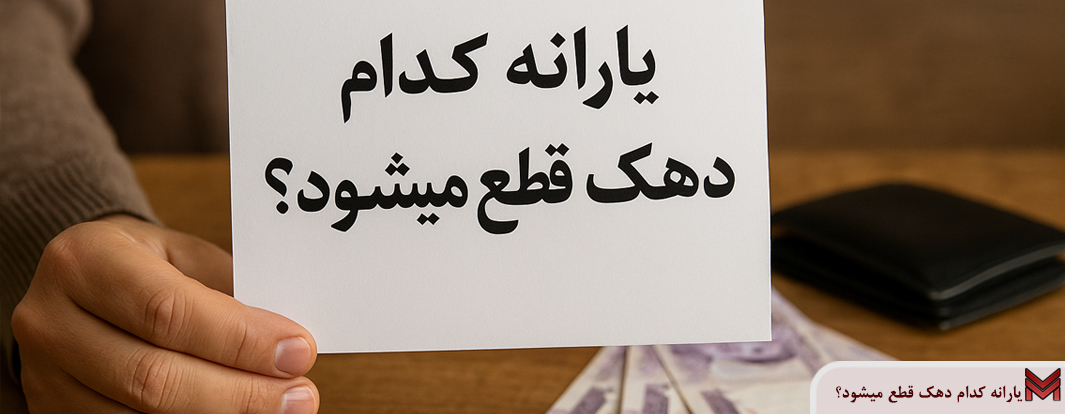 یارانه کدام
دهک قطع میشود؟
یارانه کدام دهک قطع میشود؟